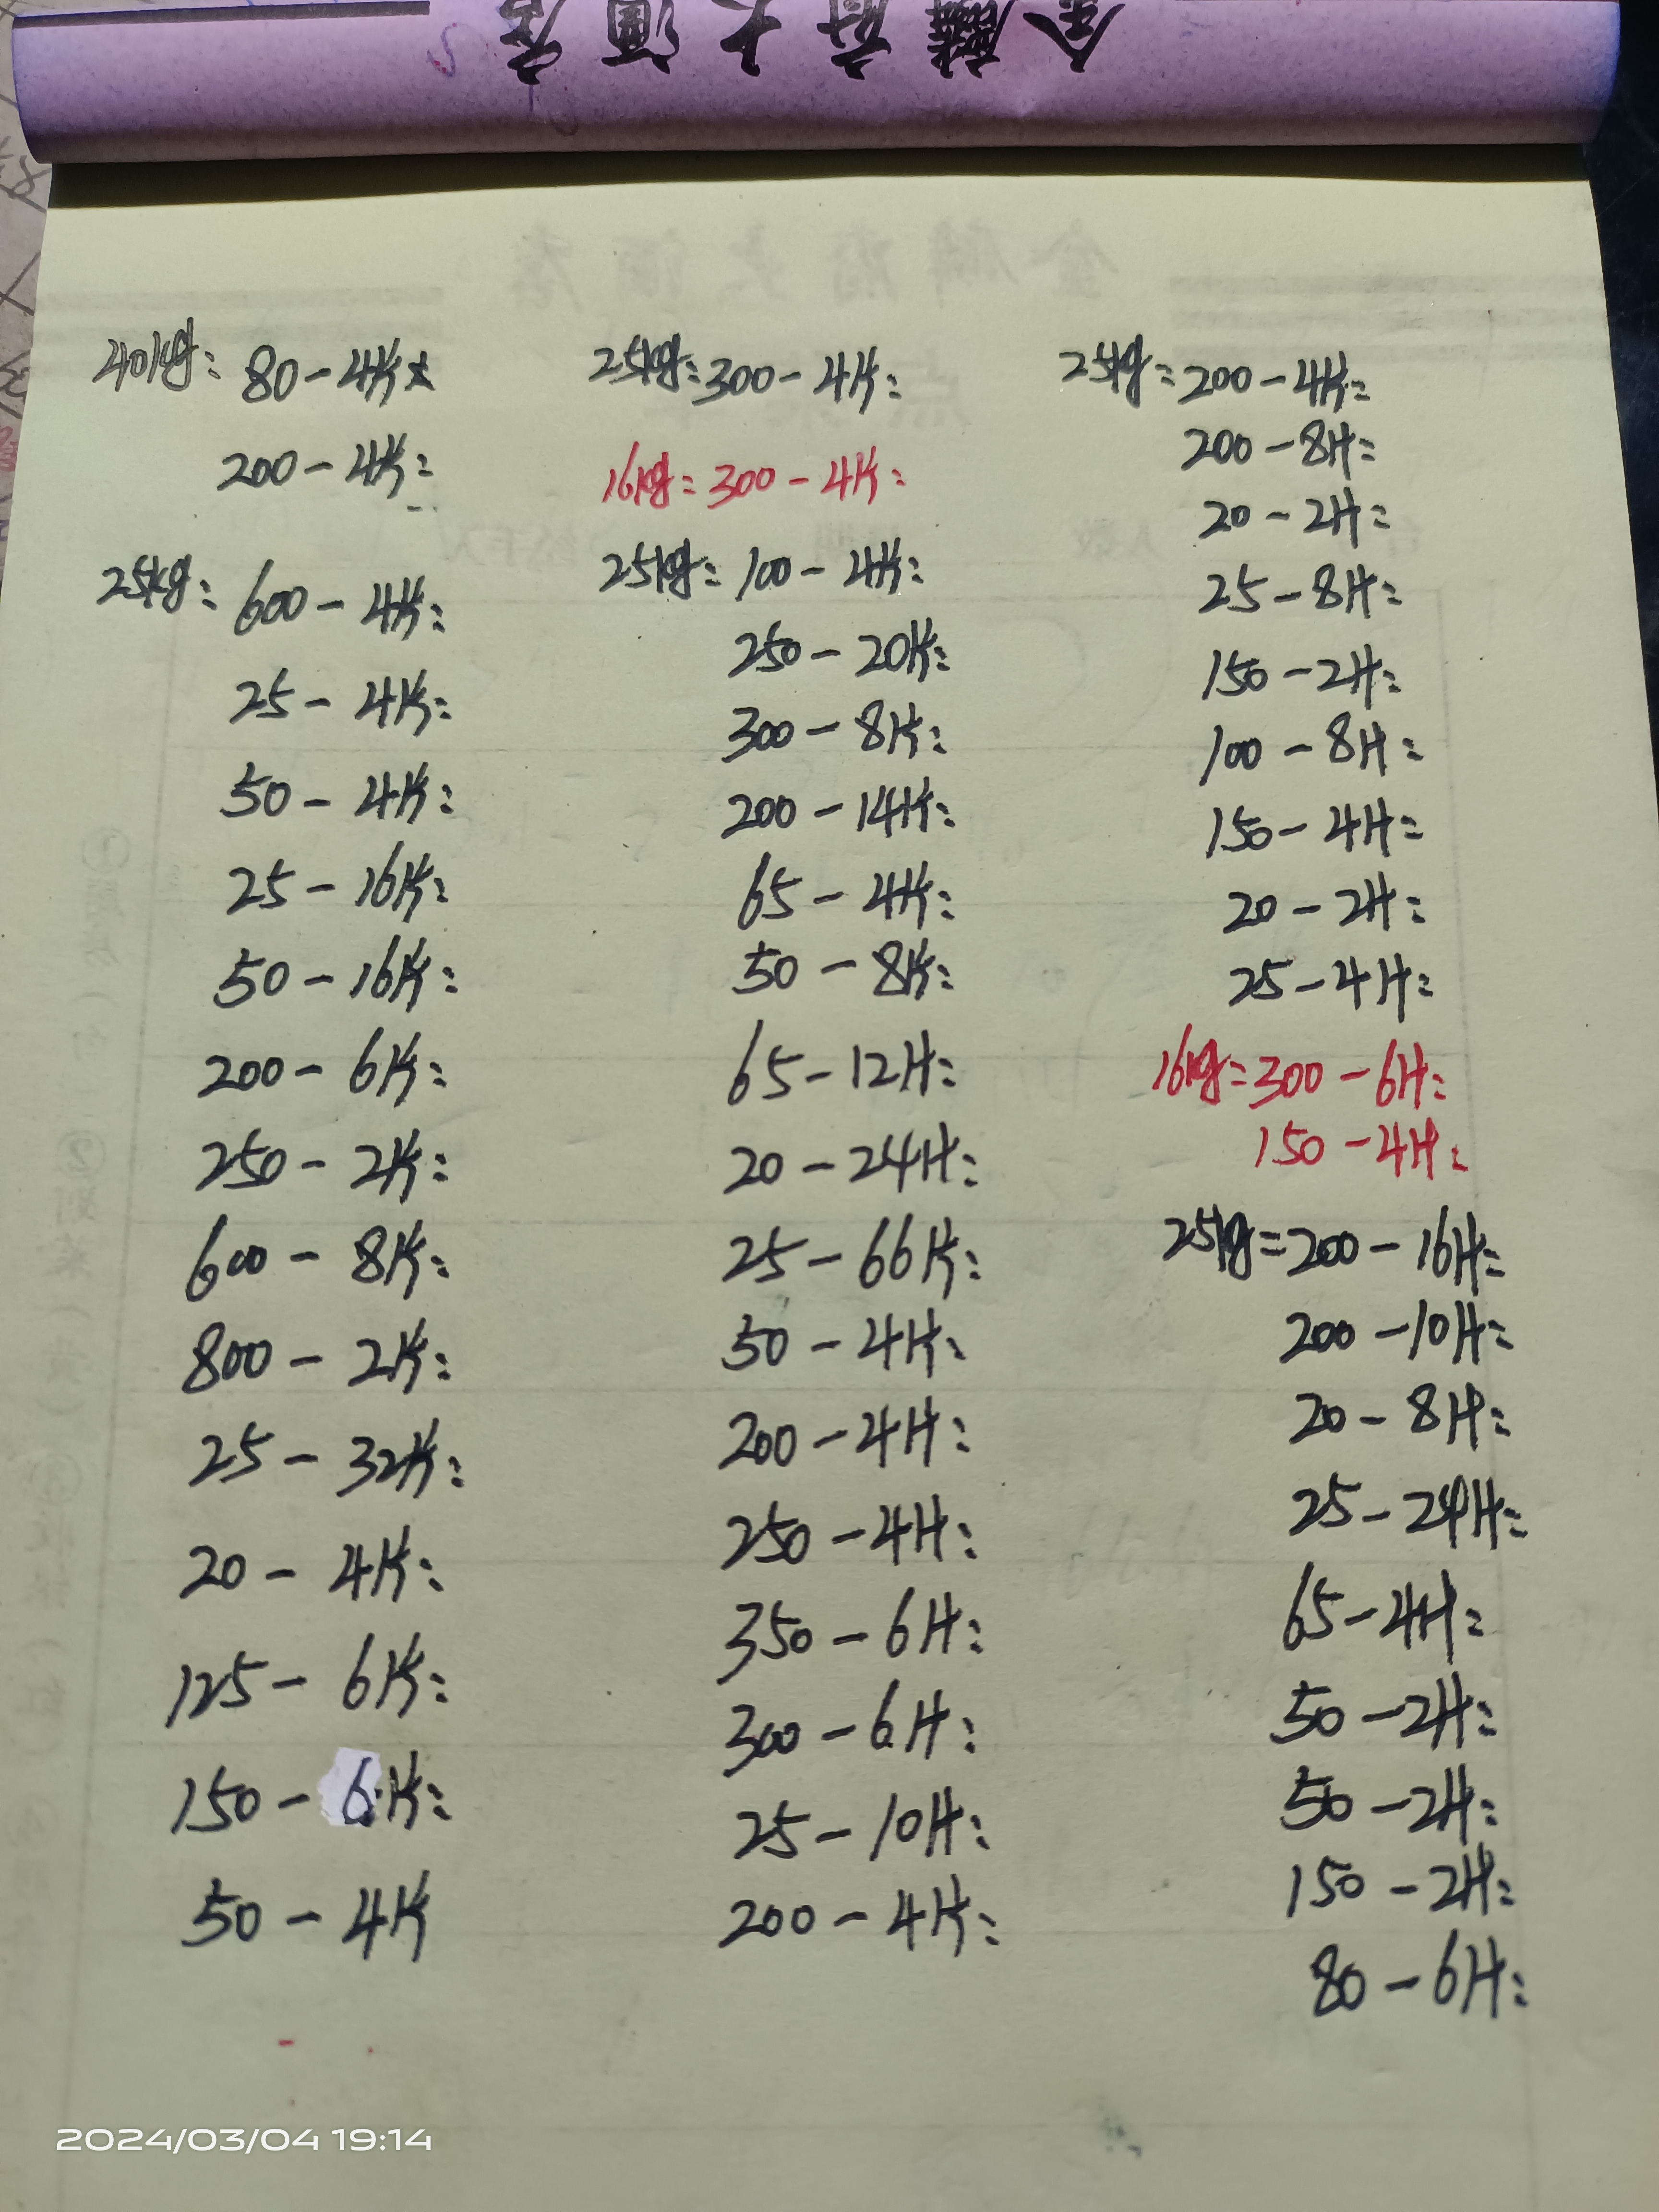 40kg: 80-4片
200-4片:
25kg: 600-4片:
25-4片:
50-4片:
25-16片:
50-16片:
200-6片:
250-2片:
600-8片:
800-2片:
25-32片:
20-4片:
125-6片:
150-6片:
50-4片
25kg: 300-4片:
16kg: 300-4片:
25kg: 100-4片:
250-20片:
300-8片:
200-14片:
65-4片:
50-8片:
65-12片:
20-24片:
25-66片:
50-4片:
200-4片:
250-4片:
350-6片:
300-6片:
25-10片:
200-4片:
25kg: 200-4片:
200-8片:
20-2片:
25-8片:
150-2片:
100-8片:
150-4片:
20-2片:
25-4片:
16kg: 300-6片:
150-4片:
25kg: 200-16片:
200-10片:
20-8片:
25-24片:
65-4片:
50-2片:
50-2片:
150-2片:
80-6片:
2024/03/04 19:14